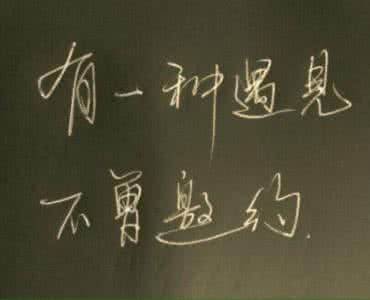 有一种遇见
不曾邀约.